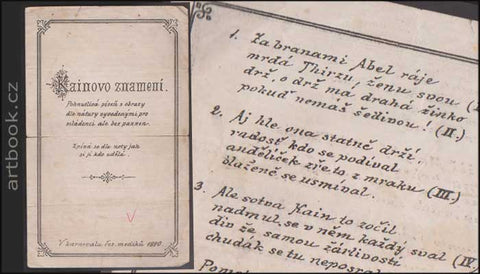 artbook.cz
Kainovo znamení.
Pohnutlivá píseň s obrazy
dle natury vyvedenými, pro
mládenci ale bez pannen.
Zpívá se dle noty jak
si ji kdo udělá.
V karnevalu čes. mediků 1890.
1. Za branami Abel ráje
mrdá Thirzu, ženu svou (I.)
drž o drž má drahá žinko
pokuď nemáš šedivou! (II.)
2. Aj hle ona statně drží
radostí kdo se podíval
andělíček zře to z mraku (III.)
blaženě se usmíval.
3. Ale sotva Kain to zočil
nadmul se v něm každý sval (IV.)
div že samou žárlivostí
chudák se tu neposral